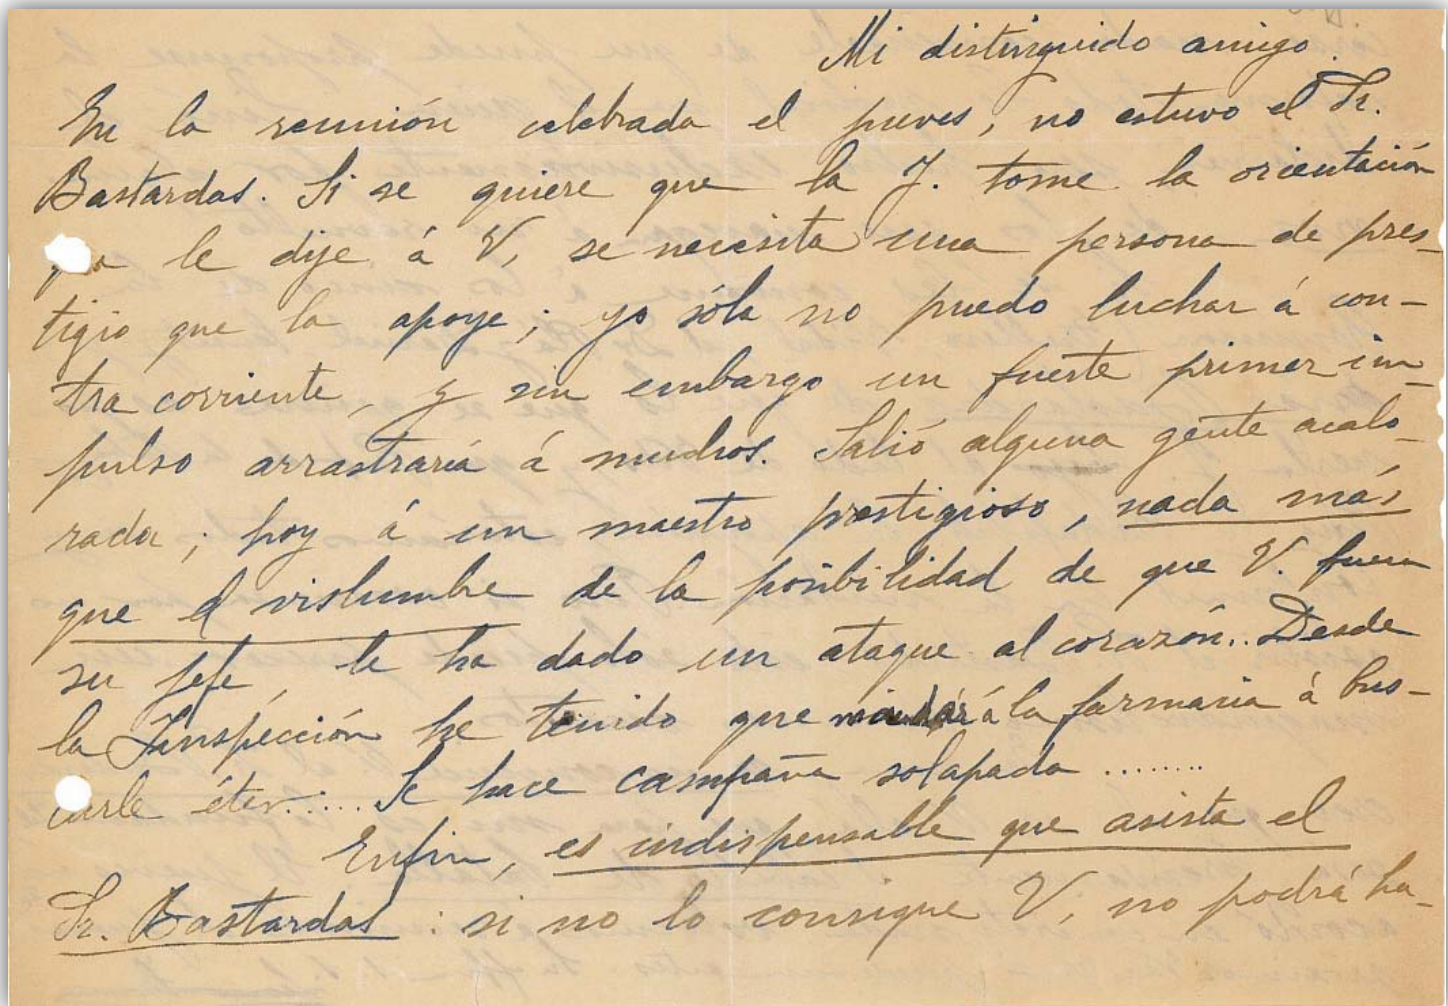 Mi distinguido amigo.
En la reunión celebrada el jueves, no estuvo el Sr.
Bastardas. Si se quiere que la J. tome la orientación
le dije á V, se necesita una persona de pres-
tigio que la apoye; yo sóla no puedo luchar á con-
tra corriente, y sin embargo un fuerte primer im-
pulso arrastraria á muchos. Salió alguna gente acalo-
rada; hoy á un maestro prestigioso, nada más
que el vislumbre de la posibilidad de que V. fuera
su jefe, le ha dado un ataque al corazón.. Desde
la Inspección he tenido que mandar á la farmacia á bus-
carle éter..... Se hace campaña solapada ........
Enfin, es indispensable que asista el
Sr. Bastardas: si no lo consigue V, no podrá ha-